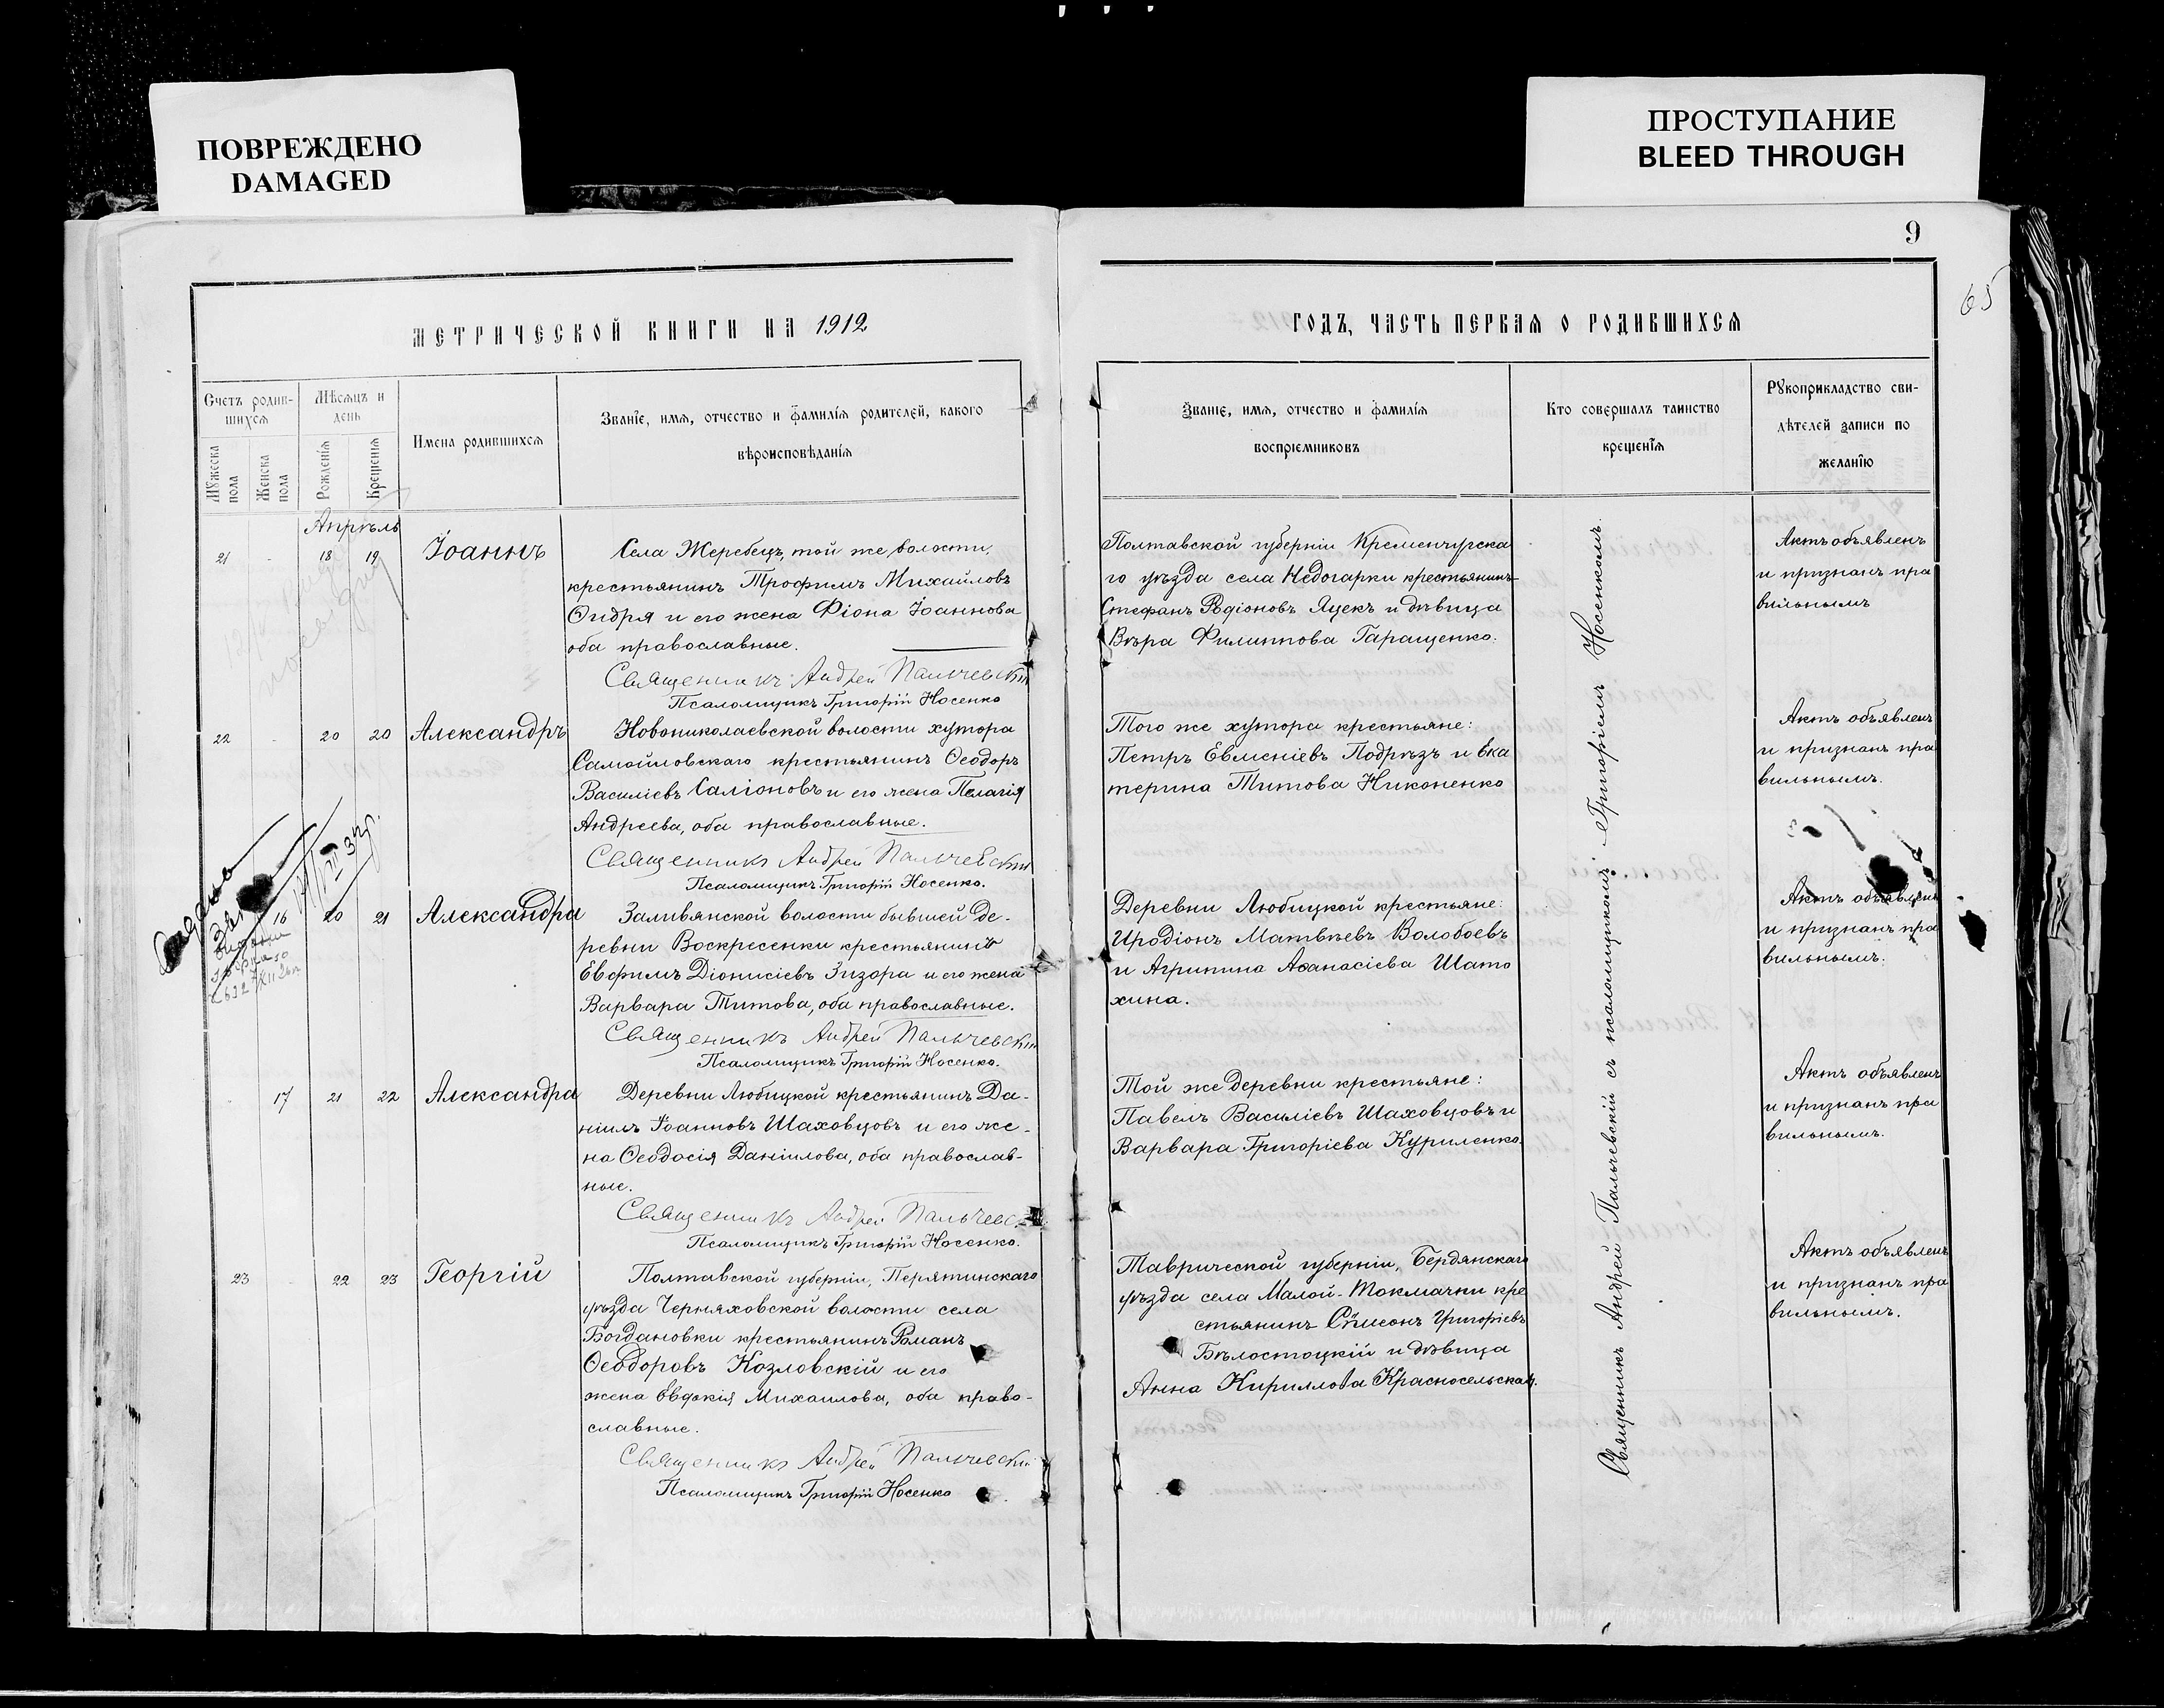 ПОВРЕЖДЕНО
DAMAGED
ПРОСТУПАНИЕ
BLEED THROUGH
9
65
МЕТРИЧЕСКОЙ КНИГИ НА 1912
ГОДЪ, ЧАСТЬ ПЕРВАЯ О РОДИВШИХСЯ
Счетъ родив-
шихся
Мужеска
пола
Женска
пола
Мѣсяцъ и
день
Рожденія
Крещенія
Имена родившихся
Званіе, имя, отчество и фамилія родителей, какого
вѣроисповѣданія
Званіе, имя, отчество и фамилія
воспріемниковъ
Кто совершалъ таинство
крещенія
Рукоприкладство сви-
дѣтелей записи по
желанію
Апрѣль
21 - 18 19 Іоаннъ
Села Жеребецъ, той же волости,
крестьянинъ Трофимъ Михайловъ
Ондря и его жена Фіона Іоаннова
оба православные.
Священникъ Андрей Пальчевскій
Псаломщикъ Григорій Носенко
Полтавской губерніи Кременчугска
го уѣзда села Недогарки крестьянинъ
Стефанъ Родіоновъ Яцекъ и дѣвица
Вѣра Филиппова Гаращенко.
Актъ объявленъ
и признанъ пра
вильнымъ
22 - 20 20 Александръ
Новониколаевской волости хутора
Самойловскаго крестьянинъ Ѳеодоръ
Василіевъ Саліоновъ и его жена Пелагія
Андреева, оба православные.
Священникъ Андрей Пальчевскій
Псаломщикъ Григорій Носенко.
Того же хутора крестьяне:
Петръ Евменіевъ Подрѣзъ и Ека
терина Титова Никоненко
Актъ объявленъ
и признанъ пра
вильнымъ.
16 20 21 Александра
Заливянской волости бывшей де-
ревни Воскресенки крестьянинъ
Евфимъ Діонисіевъ Зизора и его жена
Варвара Титова, оба православные.
Священникъ Андрей Пальчевскій
Псаломщикъ Григорій Носенко.
Деревни Любицкой крестьяне:
Иродіонъ Матвѣевъ Волобоевъ
и Агрипина Аѳанасіева Шато
хина.
Актъ объявленъ
и признанъ пра
вильнымъ.
- 17 21 22 Александра
Деревни Любицкой крестьянинъ Да-
ніилъ Іоанновъ Шаховцовъ и его же-
на Ѳеодосія Даніилова, оба православ-
ные.
Священникъ Андрей Пальчевс
Псаломщикъ Григорій Носенко.
Той же деревни крестьяне:
Павелъ Василіевъ Шаховцовъ и
Варвара Григоріева Куриленко.
Актъ объявленъ
и признанъ пра
вильнымъ.
23 - 22 23 Георгій
Полтавской губерніи, Перятинскаго
уѣзда Черняховской волости села
Богдановки крестьянинъ Романъ
Ѳеодоровъ Козловскій и его
жена Евдокія Михаилова, оба право-
славные.
Священникъ Андрей Пальчевскій
Псаломщикъ Григорій Носенко
Таврической губерніи, Бердянскаго
уѣзда села Малой-Токмачки кре
стьянинъ Симеонъ Григоріевъ
Бѣлостоцкій и дѣвица
Анна Кириллова Красносельская.
Актъ объявленъ
и признанъ пра
вильнымъ.
Священникъ Андрей Пальчевскій съ псаломщикомъ Григоріемъ Носенкомъ.